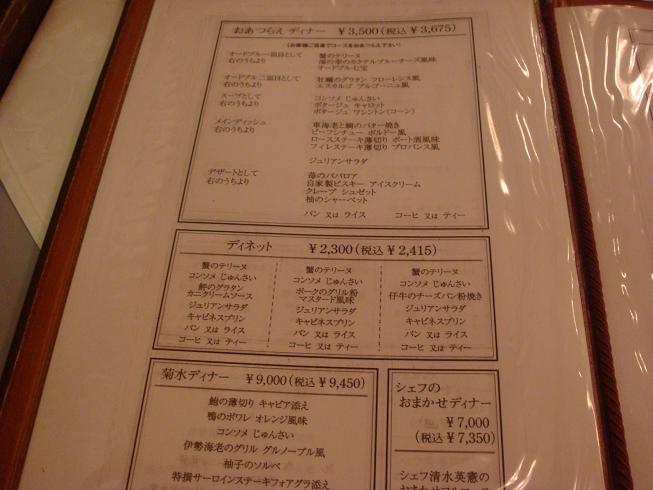 おあつらえ ディナー ￥3,500(税込 ￥3,675)
(お客様ご自身でコースをおあつらえ下さい)
オードブル一皿目として
右のうちより
蟹のテリーヌ
海の幸のカクテルブルーチーズ風味
オードブル七宝
オードブル二皿目として
右のうちより
牡蠣のグラタン フローレンス風
エスカルゴ ブルゴーニュ風
スープとして
右のうちより
コンソメ じゅんさい
ポタージュ キャロット
ポタージュ ワシントン(コーン)
メインディッシュ
右のうちより
車海老と鯛のバター焼き
ビーフシチュー ボルドー風
ロースステーキ薄切り ポート酒風味
フィレステーキ薄切り プロバンス風
ジュリアンサラダ
デザートとして
右のうちより
苺のババロア
自家製ビスキー アイスクリーム
クレープ シュゼット
柚のシャーベット
パン 又は ライス コーヒ 又は ティー
ディネット ￥2,300(税込 ￥2,415)
蟹のテリーヌ
コンソメ じゅんさい
鮃のグラタン
カニクリームソース
ジュリアンサラダ
キャビネスプリン
パン 又は ライス
コーヒ 又は ティー
蟹のテリーヌ
コンソメ じゅんさい
ポークのグリル粉
マスタード風味
ジュリアンサラダ
キャビネスプリン
パン 又は ライス
コーヒ 又は ティー
蟹のテリーヌ
コンソメ じゅんさい
仔牛のチーズパン粉焼き
ジュリアンサラダ
キャビネスプリン
パン 又は ライス
コーヒ 又は ティー
菊水ディナー ￥9,000(税込 ￥9,450)
鮑の薄切り キャビア添え
鴨のポワレ オレンジ風味
コンソメ じゅんさい
伊勢海老のグリル グルノーブル風
柚子のソルベ
特撰サーロインステーキフォアグラ添え
シェフの
おまかせディナー
￥7,000
(税込 ￥7,350)
シェフ清水英憲の